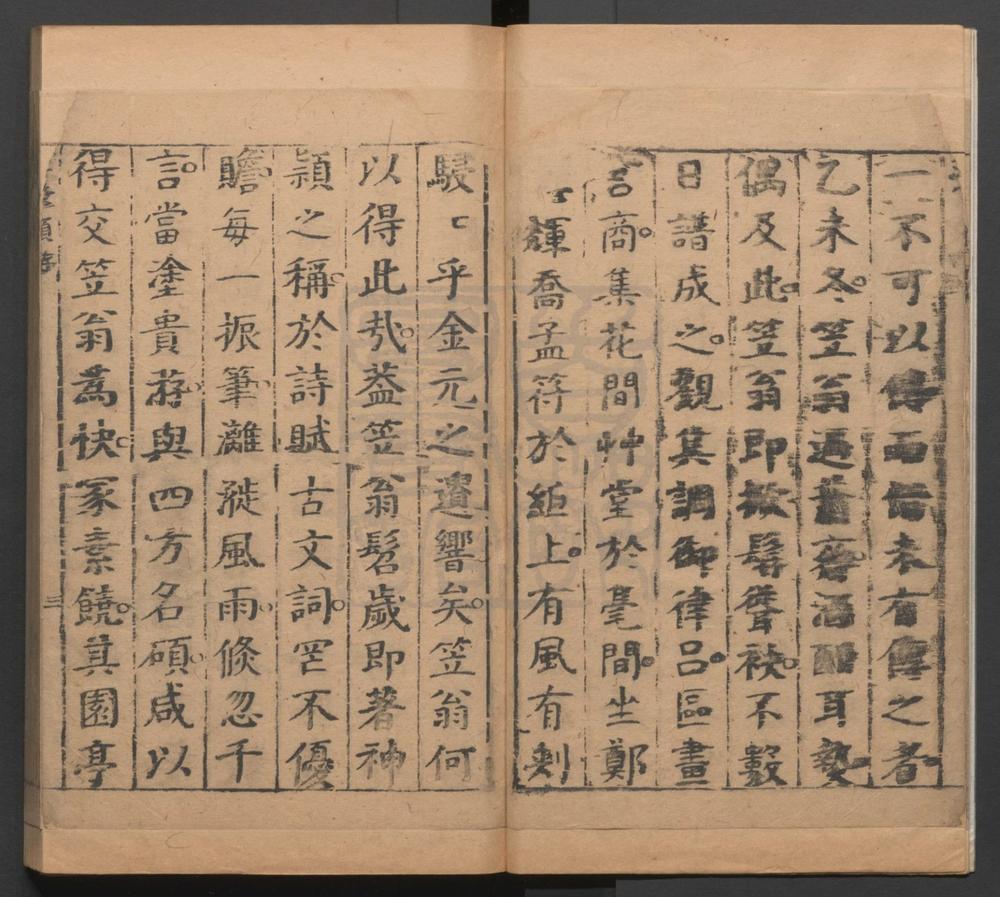 一不可以傳而皆未有傳之者。
乙未冬。笠翁過舊齋酒酣耳熱
偶及此。笠翁即掀髯聳袂。不數
日譜成之。觀其調御律呂。區畫
宮商。集花間艸堂於毫間。坐鄭
輝喬孟符於紙上。有風有刺
駸〻乎金元之遺響矣。笠翁何
以得此哉。蓋笠翁髫歲即著神
穎之稱。於詩賦古文詞。罔不優
贍。每一振筆。灕漇風雨。倏忽千
言。當塗貴游。與四方名碩。咸以
得交笠翁為快。家素饒。其園亭
三